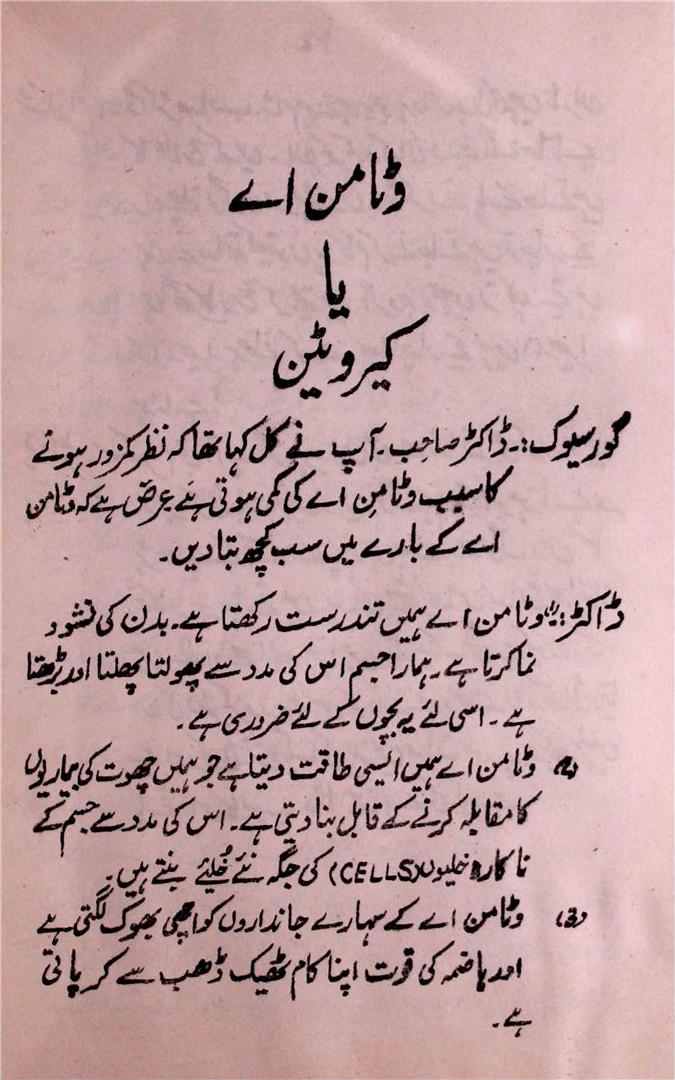 وٹامن اے
یا
کیروٹین
گورسیوک:۔ ڈاکٹر صاحب۔ آپ نے کل کہا تھا کہ نظر کمزور ہونے
کا سبب وٹامن اے کی کمی ہوتی ہے عرض ہے کہ وٹامن
اے کے بارے میں سب کچھ بتا دیں۔
ڈاکٹر:۔ (۱) وٹامن اے ہمیں تندرست رکھتا ہے۔ بدن کی نشو و
نما کرتا ہے۔ ہمارا جسم اس کی مدد سے پھولتا پھلتا اور بڑھتا
ہے۔ اسی لئے یہ بچوں کے لئے ضروری ہے۔
(۲) وٹامن اے ہمیں ایسی طاقت دیتا ہے جو ہمیں چھوت کی بیماریوں
کا مقابلہ کرنے کے قابل بنا دیتی ہے۔ اس کی مدد سے جسم کے
ناکارہ خلیوں (CELLS) کی جگہ نئے خُلیئے بنتے ہیں۔
(۳) وٹامن اے کے سہارے جانداروں کو اچھی بھوک لگتی ہے
اور ہاضمہ کی قوت اپنا کام ٹھیک ڈھب سے کر پاتی
ہے۔